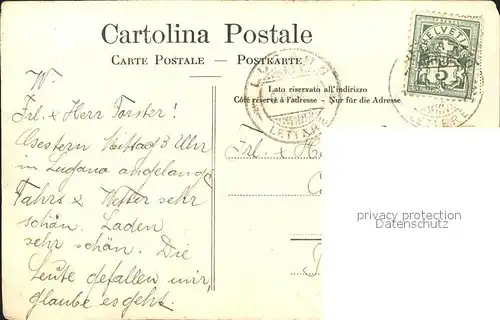 Cartolina Postale
CARTE POSTALE — POSTKARTE
Lato riservato all'indirizzo
Côté réservé à l'adresse - Nur für die Adresse
HELVETIA
5
LUGANO
LETTERE
W.
Frl. & Herr Forster!
Gestern Mittag 3 Uhr
in Lugano angelangt
Fahrt & Wetter sehr
schön. Laden
sehr schön. Die
Leute gefallen mir,
glaube es geht.
Frl. & H
privacy protection
oldthing.de